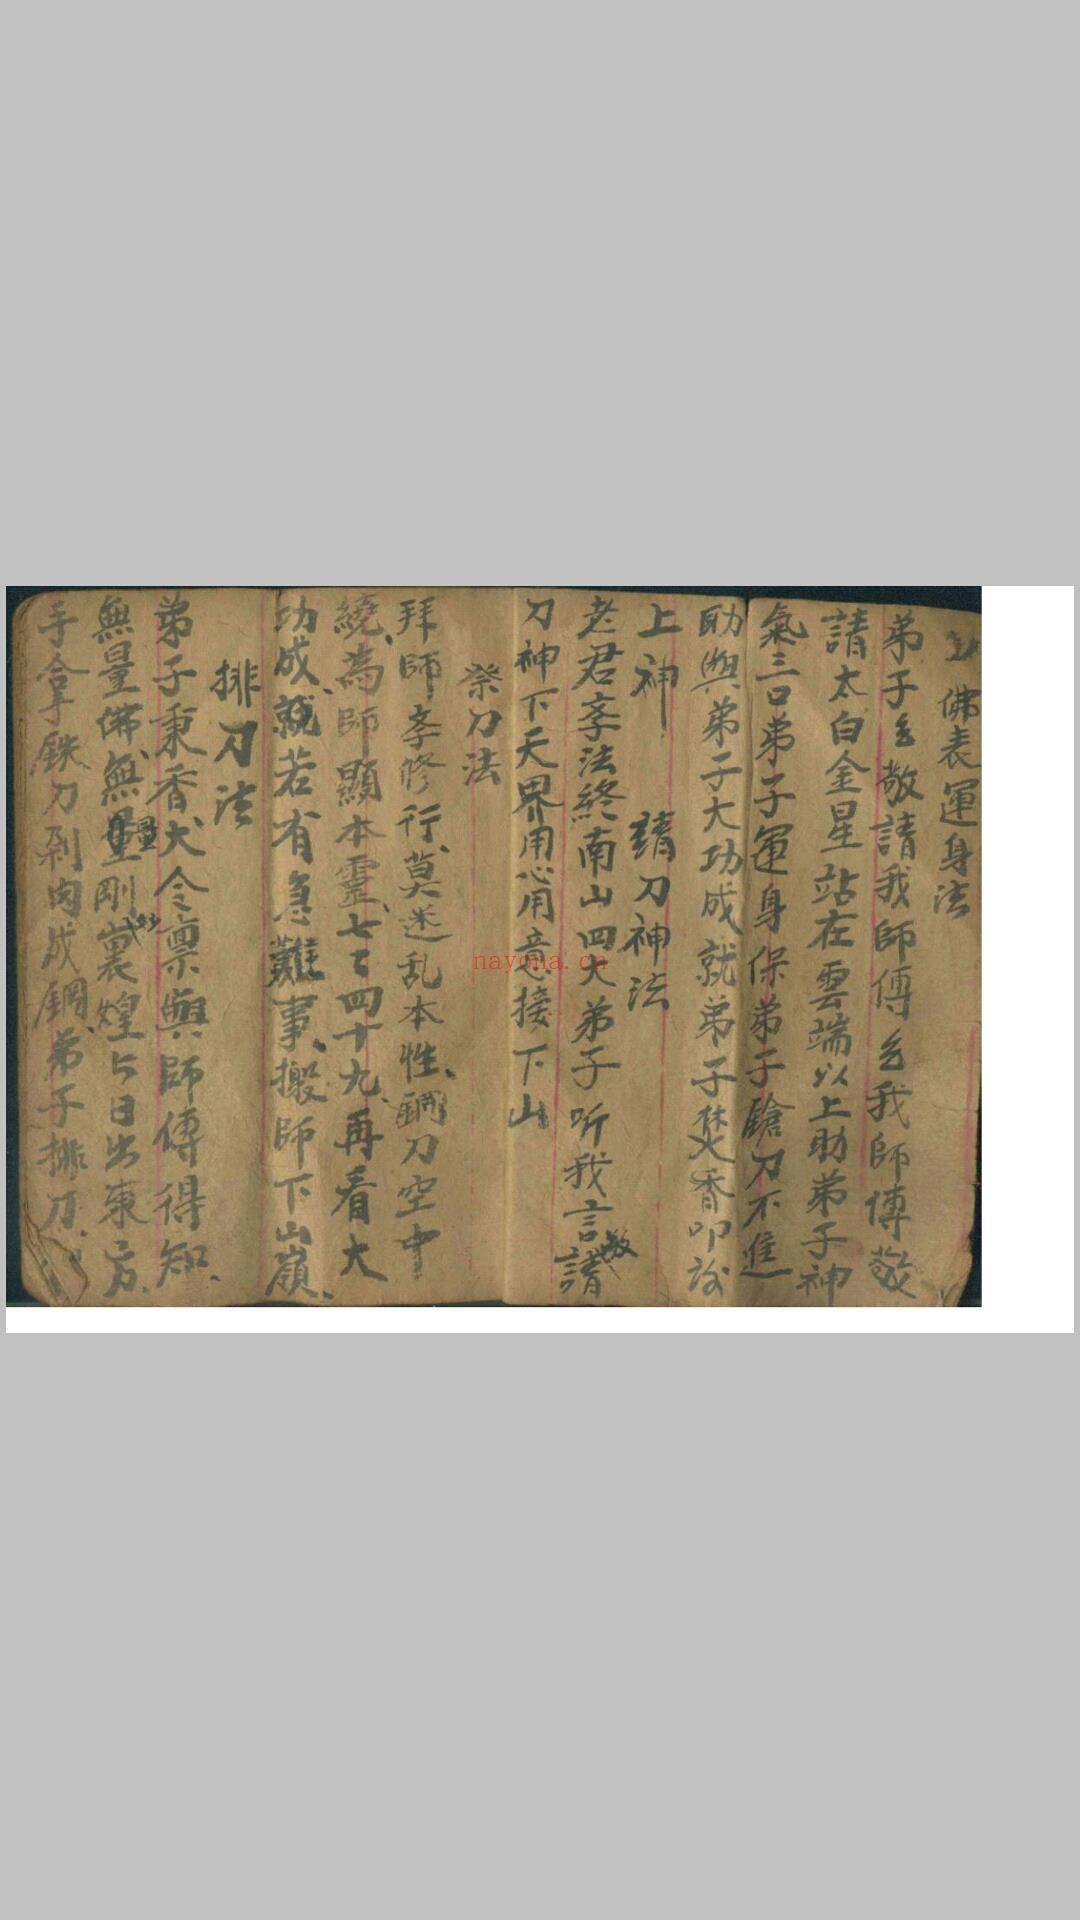 佛表運身法
弟子乞敬請我師傅乞我師傅敬
請太白金星站在雲端以上助弟子神
氣三口弟子運身保弟子鎗刀不進
助與弟子大功成就弟子焚香叩
上神　請刀神法
老君李法終南山四大弟子听我言敬請
刀神下天界用心用意接下山
祭刀法
拜師李修行、莫迷乱本性、鋼刀空中
繞、為師顯本靈、七七四十九、再看大
功成就、若有急難事、搬師下山嶺、
排刀法
弟子秉香火令禀與師傅得知、
無量佛、無量剛裏煌与日出東方、
手合手鉄刀剁肉成鋼、弟子排刀、
nayona.cn